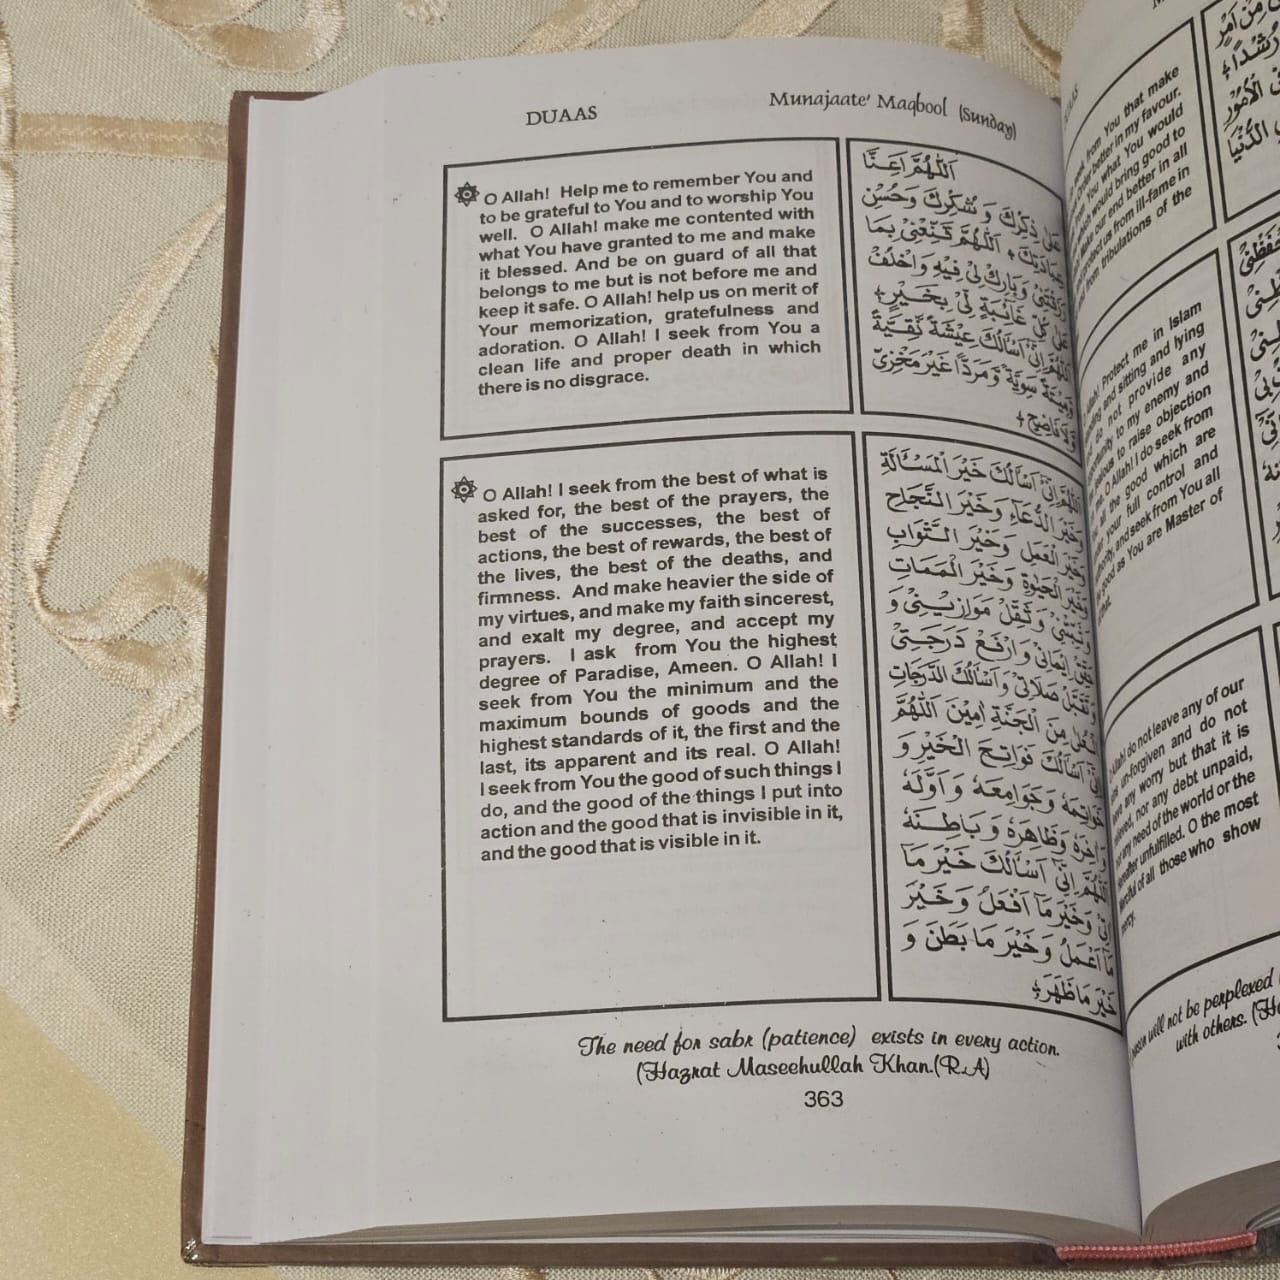 DUAAS
Munajaate' Maqbool (Sunday)
O Allah! Help me to remember You and
to be grateful to You and to worship You
well. O Allah! make me contented with
what You have granted to me and make
it blessed. And be on guard of all that
belongs to me but is not before me and
keep it safe. O Allah! help us on merit of
Your memorization, gratefulness and
adoration. O Allah! I seek from You a
clean life and proper death in which
there is no disgrace.
اَللّٰهُمَّ اَعِنَّا
عَلٰى ذِكْرِكَ وَ شُكْرِكَ وَحُسْنِ
عِبَادَتِكَ اَللّٰهُمَّ قَنِّعْنِيْ بِمَا
رَزَقْتَنِيْ وَبَارِكْ لِيْ فِيْهِ وَاخْلُفْ
عَلٰى كُلِّ غَائِبَةٍ لِّيْ بِخَيْرٍ
اَللّٰهُمَّ اِنِّيْ اَسْاَلُكَ عِيْشَةً نَّقِيَّةً
وَّمِيْتَةً سَوِيَّةً وَّمَرَدًّا غَيْرَ مَخْزِيٍّ
وَّلَا فَاضِحٍ
O Allah! I seek from the best of what is
asked for, the best of the prayers, the
best of the successes, the best of
actions, the best of rewards, the best of
the lives, the best of the deaths, and
firmness. And make heavier the side of
my virtues, and make my faith sincerest,
and exalt my degree, and accept my
prayers. I ask from You the highest
degree of Paradise, Ameen. O Allah! I
seek from You the minimum and the
maximum bounds of goods and the
highest standards of it, the first and the
last, its apparent and its real. O Allah!
I seek from You the good of such things I
do, and the good of the things I put into
action and the good that is invisible in it,
and the good that is visible in it.
اَللّٰهُمَّ اِنِّيْ اَسْاَلُكَ خَيْرَ الْمَسْاَلَةِ
وَخَيْرَ الدُّعَآءِ وَخَيْرَ النَّجَاحِ
وَخَيْرَ الْعَمَلِ وَخَيْرَ الثَّوَابِ
وَخَيْرَ الْحَيٰوةِ وَخَيْرَ الْمَمَاتِ
وَثَبِّتْنِيْ وَثَقِّلْ مَوَازِيْنِيْ وَ
حَقِّقْ اِيْمَانِيْ وَارْفَعْ دَرَجَتِيْ
وَتَقَبَّلْ صَلَاتِيْ وَاَسْاَلُكَ الدَّرَجَاتِ
الْعُلٰى مِنَ الْجَنَّةِ اٰمِيْنَ اَللّٰهُمَّ
اِنِّيْ اَسْاَلُكَ فَوَاتِحَ الْخَيْرِ وَ
خَوَاتِمَهٗ وَجَوَامِعَهٗ وَاَوَّلَهٗ
وَاٰخِرَهٗ وَظَاهِرَهٗ وَبَاطِنَهٗ
اَللّٰهُمَّ اِنِّيْ اَسْاَلُكَ خَيْرَ مَا
اٰتِيْ وَخَيْرَ مَا اَفْعَلُ وَخَيْرَ
مَا اَعْمَلُ وَخَيْرَ مَا بَطَنَ وَ
خَيْرَ مَا ظَهَرَ
The need for sabr (patience) exists in every action.
(Hazrat Maseehullah Khan.(R.A)
363
from You that make
better in my favour.
You what You would
which would bring good to
our end better in all
protect us from ill-fame in
from tribulations of the
Allah! Protect me in Islam
and sitting and lying
do not provide any
to my enemy and
to raise objection
O Allah! I do seek from
all the good which are
under your full control and
and seek from You all
good as You are Master of
that.
Allah! do not leave any of our
un-forgiven and do not
any worry but that it is
nor any debt unpaid,
any need of the world or the
unfulfilled. O the most
of all those who show
mercy.
will not be perplexed
with others.